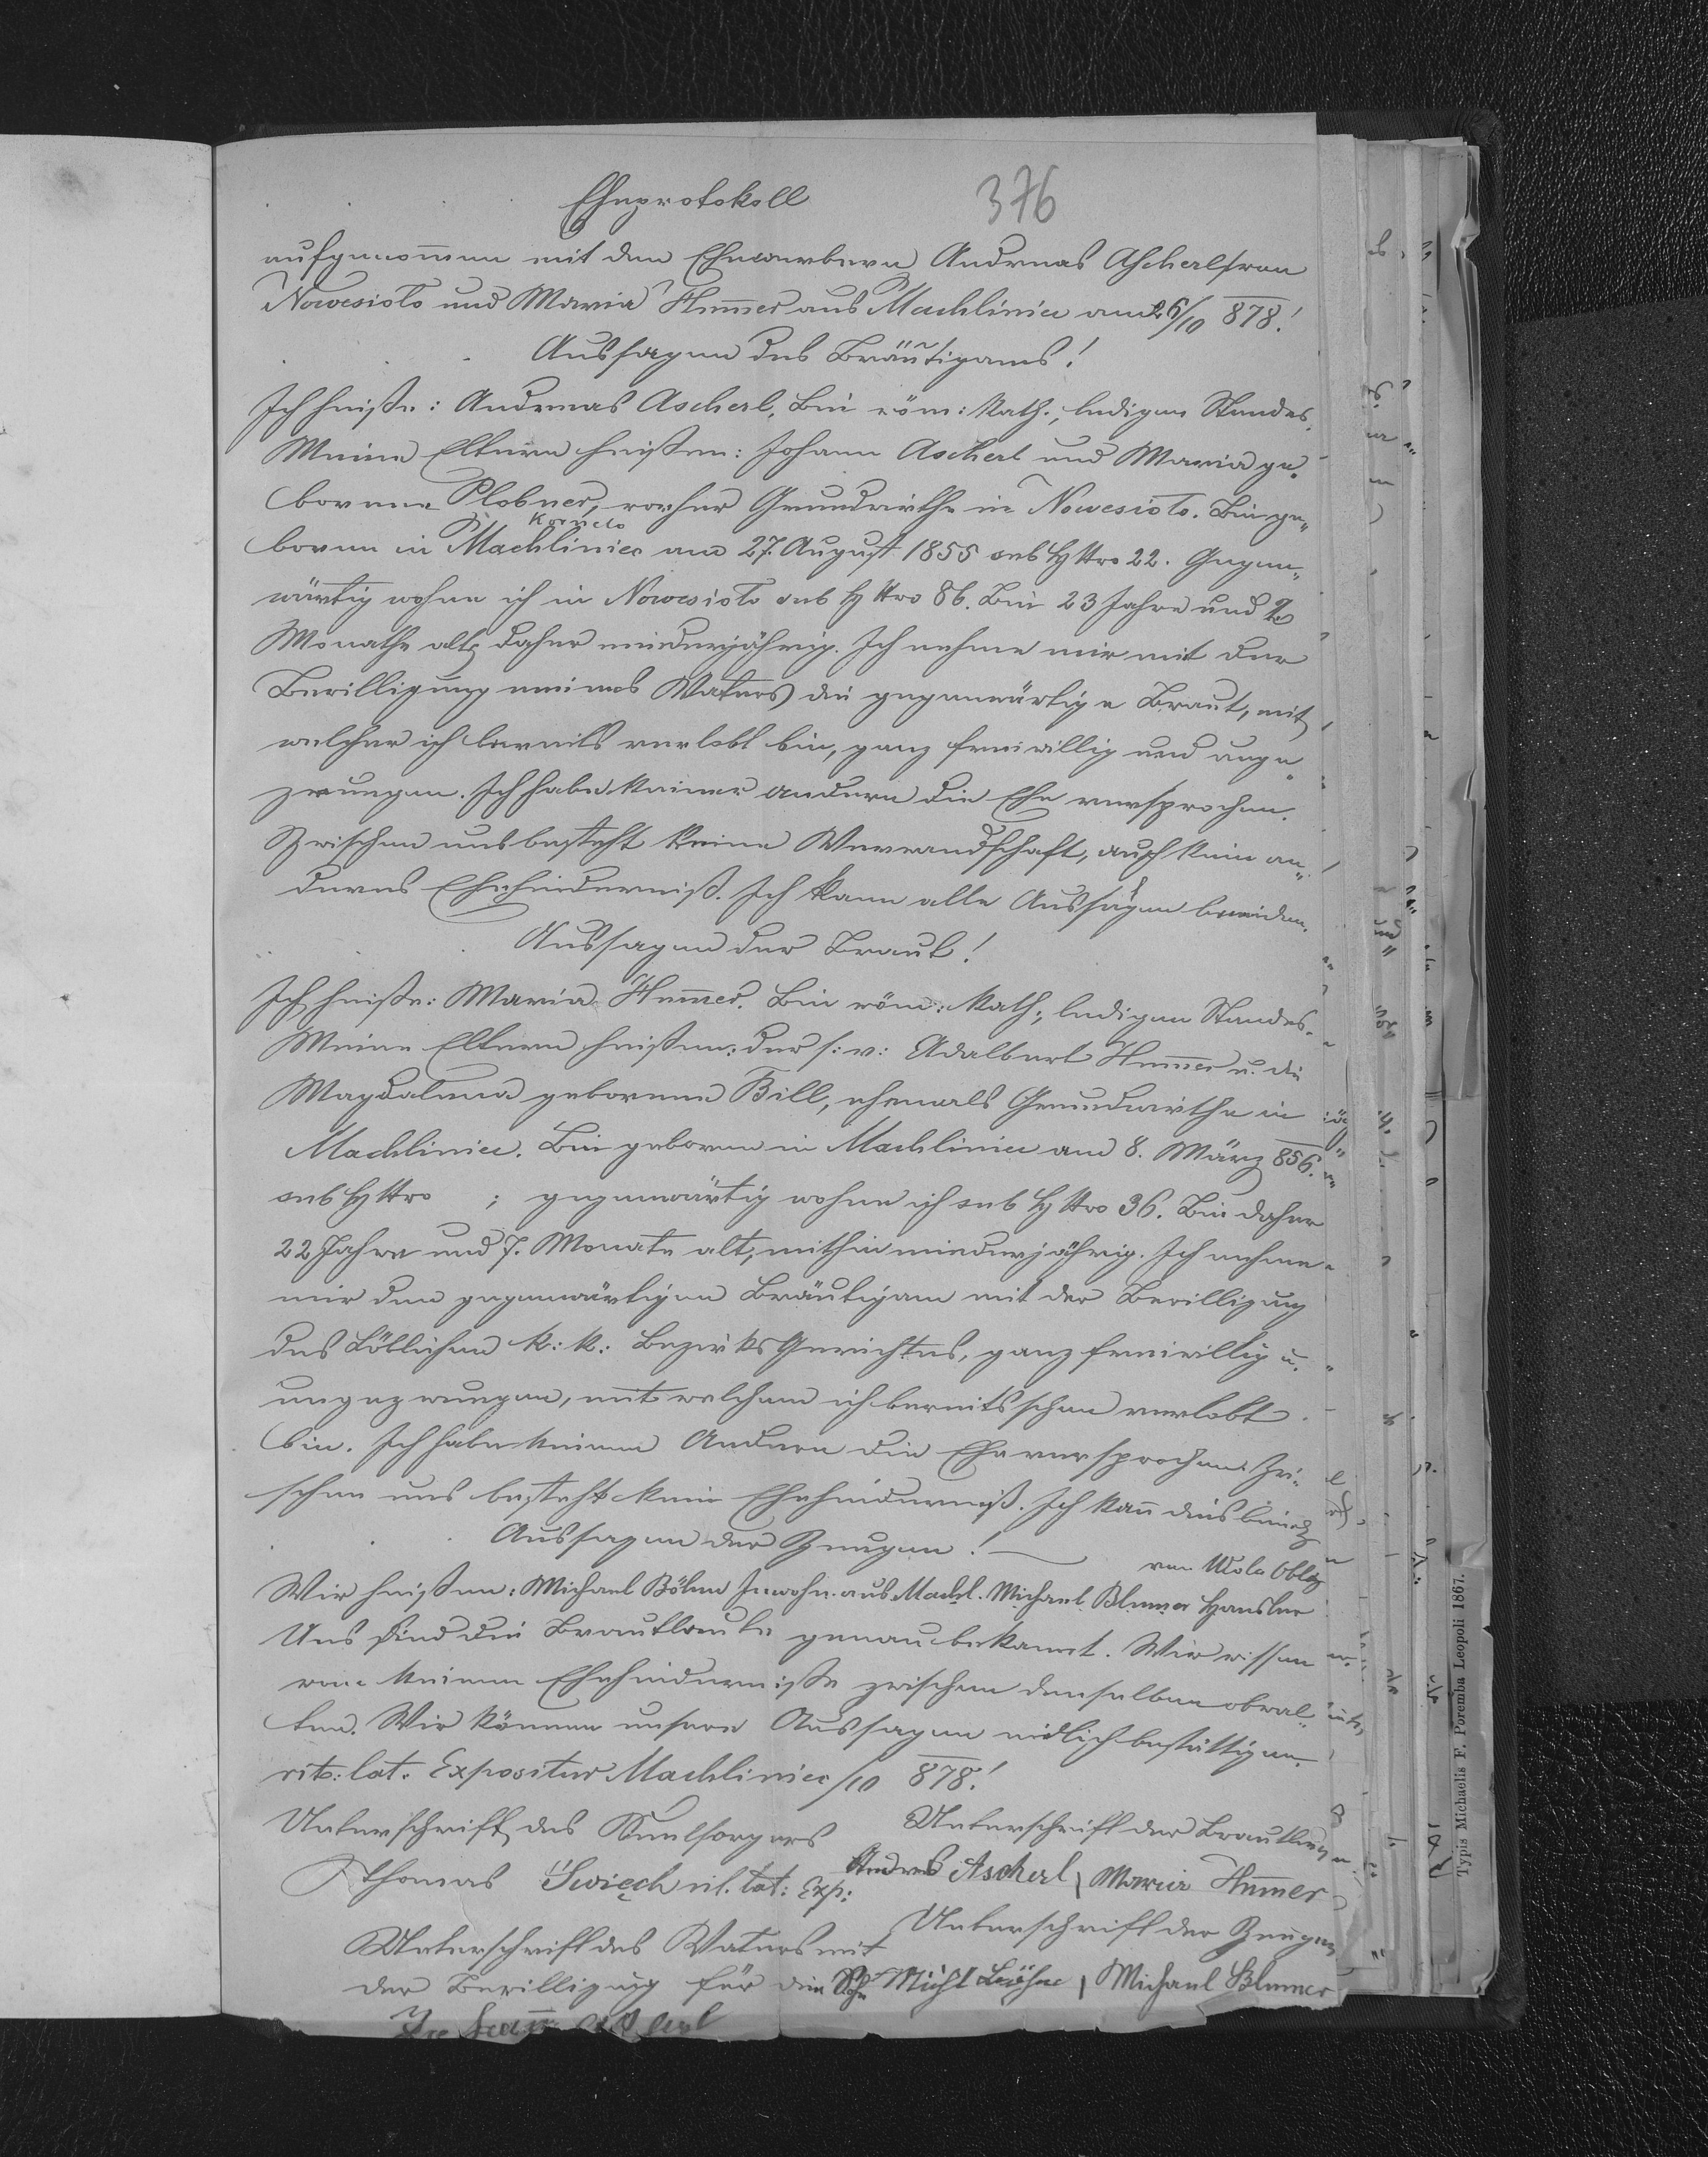 Eheprotokoll 376
aufgenommen mit den Ehewerbern Andreas Ascherl von
Nowesioło und Maria Hemmer aus Machliniec am 26/10 878!
Aussagen des Bräutigams!
Ich heiße: Andreas Ascherl, Bin röm: kath:, ledigen Standes,
Meine Eltern heißen: Johann Ascherl und Maria ge-
borene Plobner, Grundwirthe in Nowesioło. Bin ge-
Kornelo
boren in Machliniec am 27. August 1855 sub H Nro 22. Gegen-
wärtig wohne ich in Nowesioło sub H Nro 86. Bin 23 Jahre und 2
Monathe alt, daher minderjährig. Ich nehme mir mit der
Bewilligung meines Vaters die gegenwärtige Braut, mit
welcher ich bereits verlobt bin, ganz freiwillig und unge-
zwungen. Ich habe keiner andern die Ehe versprochen.
Zwischen uns besteht keine Verwandschaft, auch kein an-
deres Ehehinderniß. Ich kann alle Aussagen beeiden.
Aussagen der Braut!
Ich heiße: Maria Hemmer. Bin röm: kath:, ledigen Standes.
Meine Eltern heißen: der s: v: Adalbert Hemmer u. die
Magdalena geborene Bill, ehemals Grundwirthe in
Machliniec. Bin geboren in Machliniec am 8. März 856.
sub H Nro ; gegenwärtig wohne ich sub H Nro 36. Bin daher
22 Jahre und 7. Monate alt, mithin minderjährig. Ich nehme
mir den gegenwärtigen Bräutigam mit der Bewilligung
des Löblichen k: k: Bezirks Gerichtes, ganz freiwillig u.
ungezwungen, mit welchem ich bereits schon verlobt
bin. Ich habe keinem Andern die Ehe versprochen. Zwi-
schen uns besteht kein Ehehinderniß. Ich kann dies
Aussagen der Zeugen!
von Wola Obłaz
Wir heißen: Michael Böhm Inwohn. aus Machl. Michael Blumer Häusler
Uns sind die Brautleute genau bekannt. Wir wissen
von keinem Ehehinderniße zwischen denselben obwal-
ten. Wir können unsere Aussagen eidlich bestättigen.
rit: lat. Expositur Machliniec /10 878!
Unterschrift des Seelsorgers Unterschrift der Brautleute
Thomas Święch rit. lat: Exp: Andreas Ascherl, Maria Hemmer
Unterschrift des Vaters mit Unterschrift der Zeugen
der Bewilligung für den Sohn Michl Böhm, Michael Blumer
Johann Ascherl
Typis Michaelis F. Poremba Leopoli 1867.